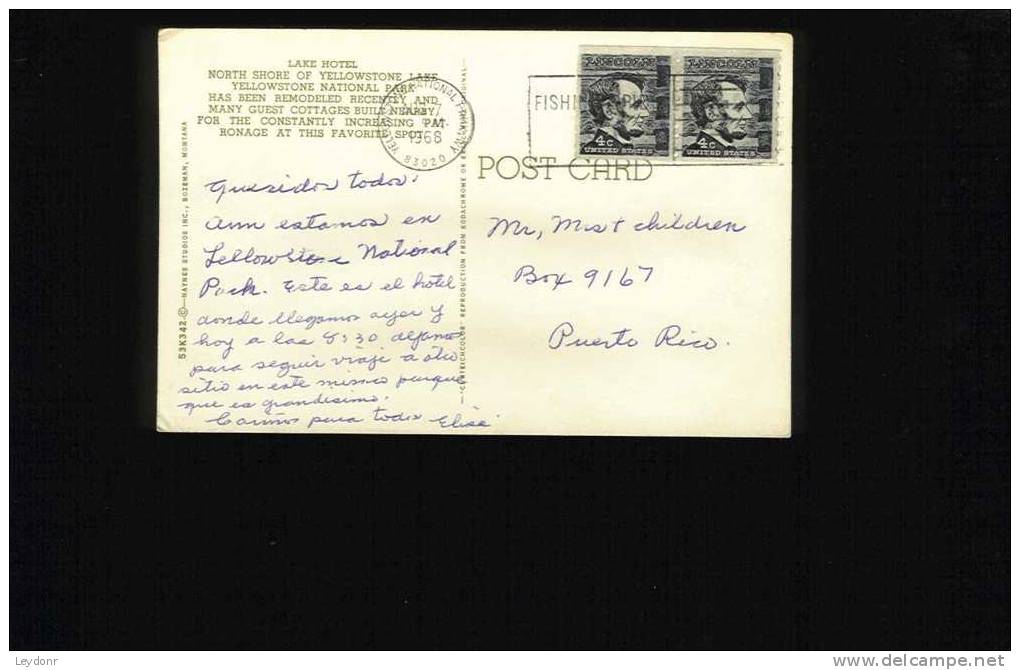 LAKE HOTEL
NORTH SHORE OF YELLOWSTONE LAKE
YELLOWSTONE NATIONAL PARK
HAS BEEN REMODELED RECENTLY AND
MANY GUEST COTTAGES BUILT NEARBY
FOR THE CONSTANTLY INCREASING PAT-
RONAGE AT THIS FAVORITE SPOT.
Queridos todos:
Aun estamos en
Yellowstone National
Park. Este es el hotel
donde llegamos ayer y
hoy a las 8:30 dejamos
para seguir viaje a otro
sitio en este mismo parque
que es grandisimo.
Cariños para todos Elisa
53K342.©—HAYNES STUDIOS INC., BOZEMAN, MONTANA
REPRODUCTION FROM KODACHROME OR ORIGINAL—
YELLOWSTONE NATIONAL PARK, WY.
1968
83020
FISHING
LINCOLN
4c
UNITED STATES
LINCOLN
4c
UNITED STATES
POST CARD
Mr, Mrs + children
Box 9167
Puerto Rico.
Leydonr
delcampe.net